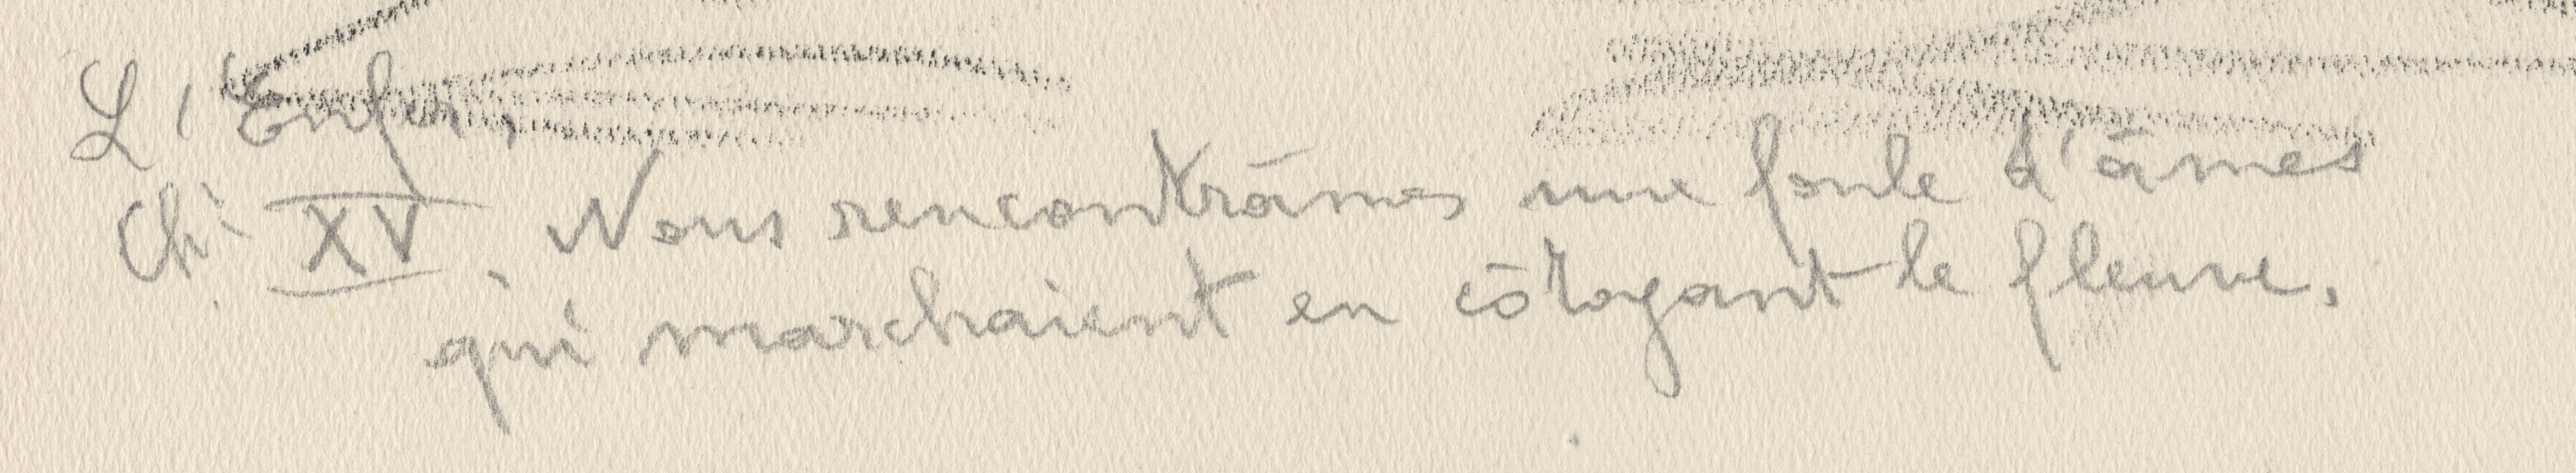 L'Enfer,
Ch: XV. Nous rencontrâmes une foule d'âmes
qui marchaient en côtoyant le fleuve.